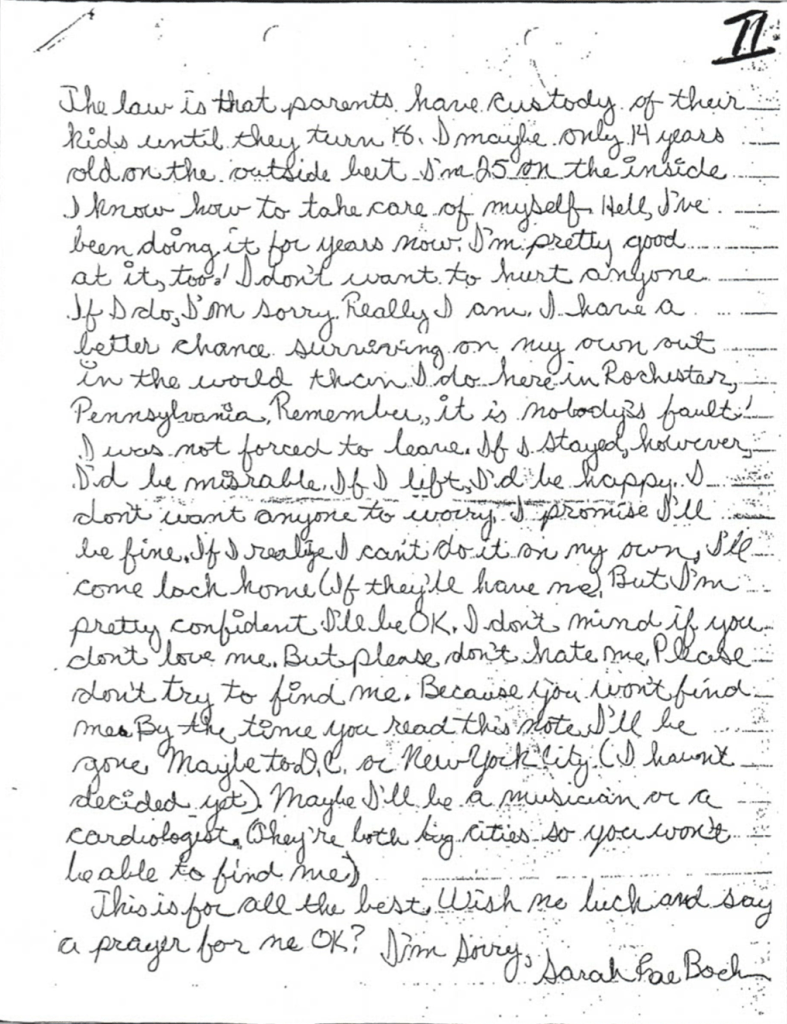 II
The law is that parents have custody of their
kids until they turn 18. I maybe only 14 years
old on the outside but I'm 25 on the inside
I know how to take care of myself. Hell, I've
been doing it for years now. I'm pretty good
at it, too! I don't want to hurt anyone
If I do, I'm sorry. Really I am. I have a
better chance surviving on my own out
in the world than I do here in Rochester,
Pennsylvania. Remember, it is nobody's fault!
I was not forced to leave. If I stayed, however,
I'd be misrable. If I left, I'd be happy. I
don't want anyone to worry. I promise I'll
be fine. If I realize I can't do it on my own, I'll
come back home (If they'll have me). But I'm
pretty confident I'll be OK. I don't mind if you
don't love me. But please don't hate me. Please
don't try to find me. Because you won't find
me. By the time you read this note, I'll be
gone. Maybe to D.C. or New York City. (I haven't
decided yet). Maybe I'll be a musician or a
cardiologist. (They're both big cities so you won't
be able to find me)
This is for all the best. Wish me luck and say
a prayer for me OK? I'm sorry,
Sarah Rae Boehm